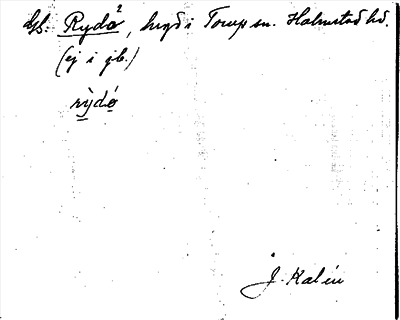 Rydö², bygd i Torup sn. Halmstad hd.
(ej i jb.)
rỳdó
J. Kalén